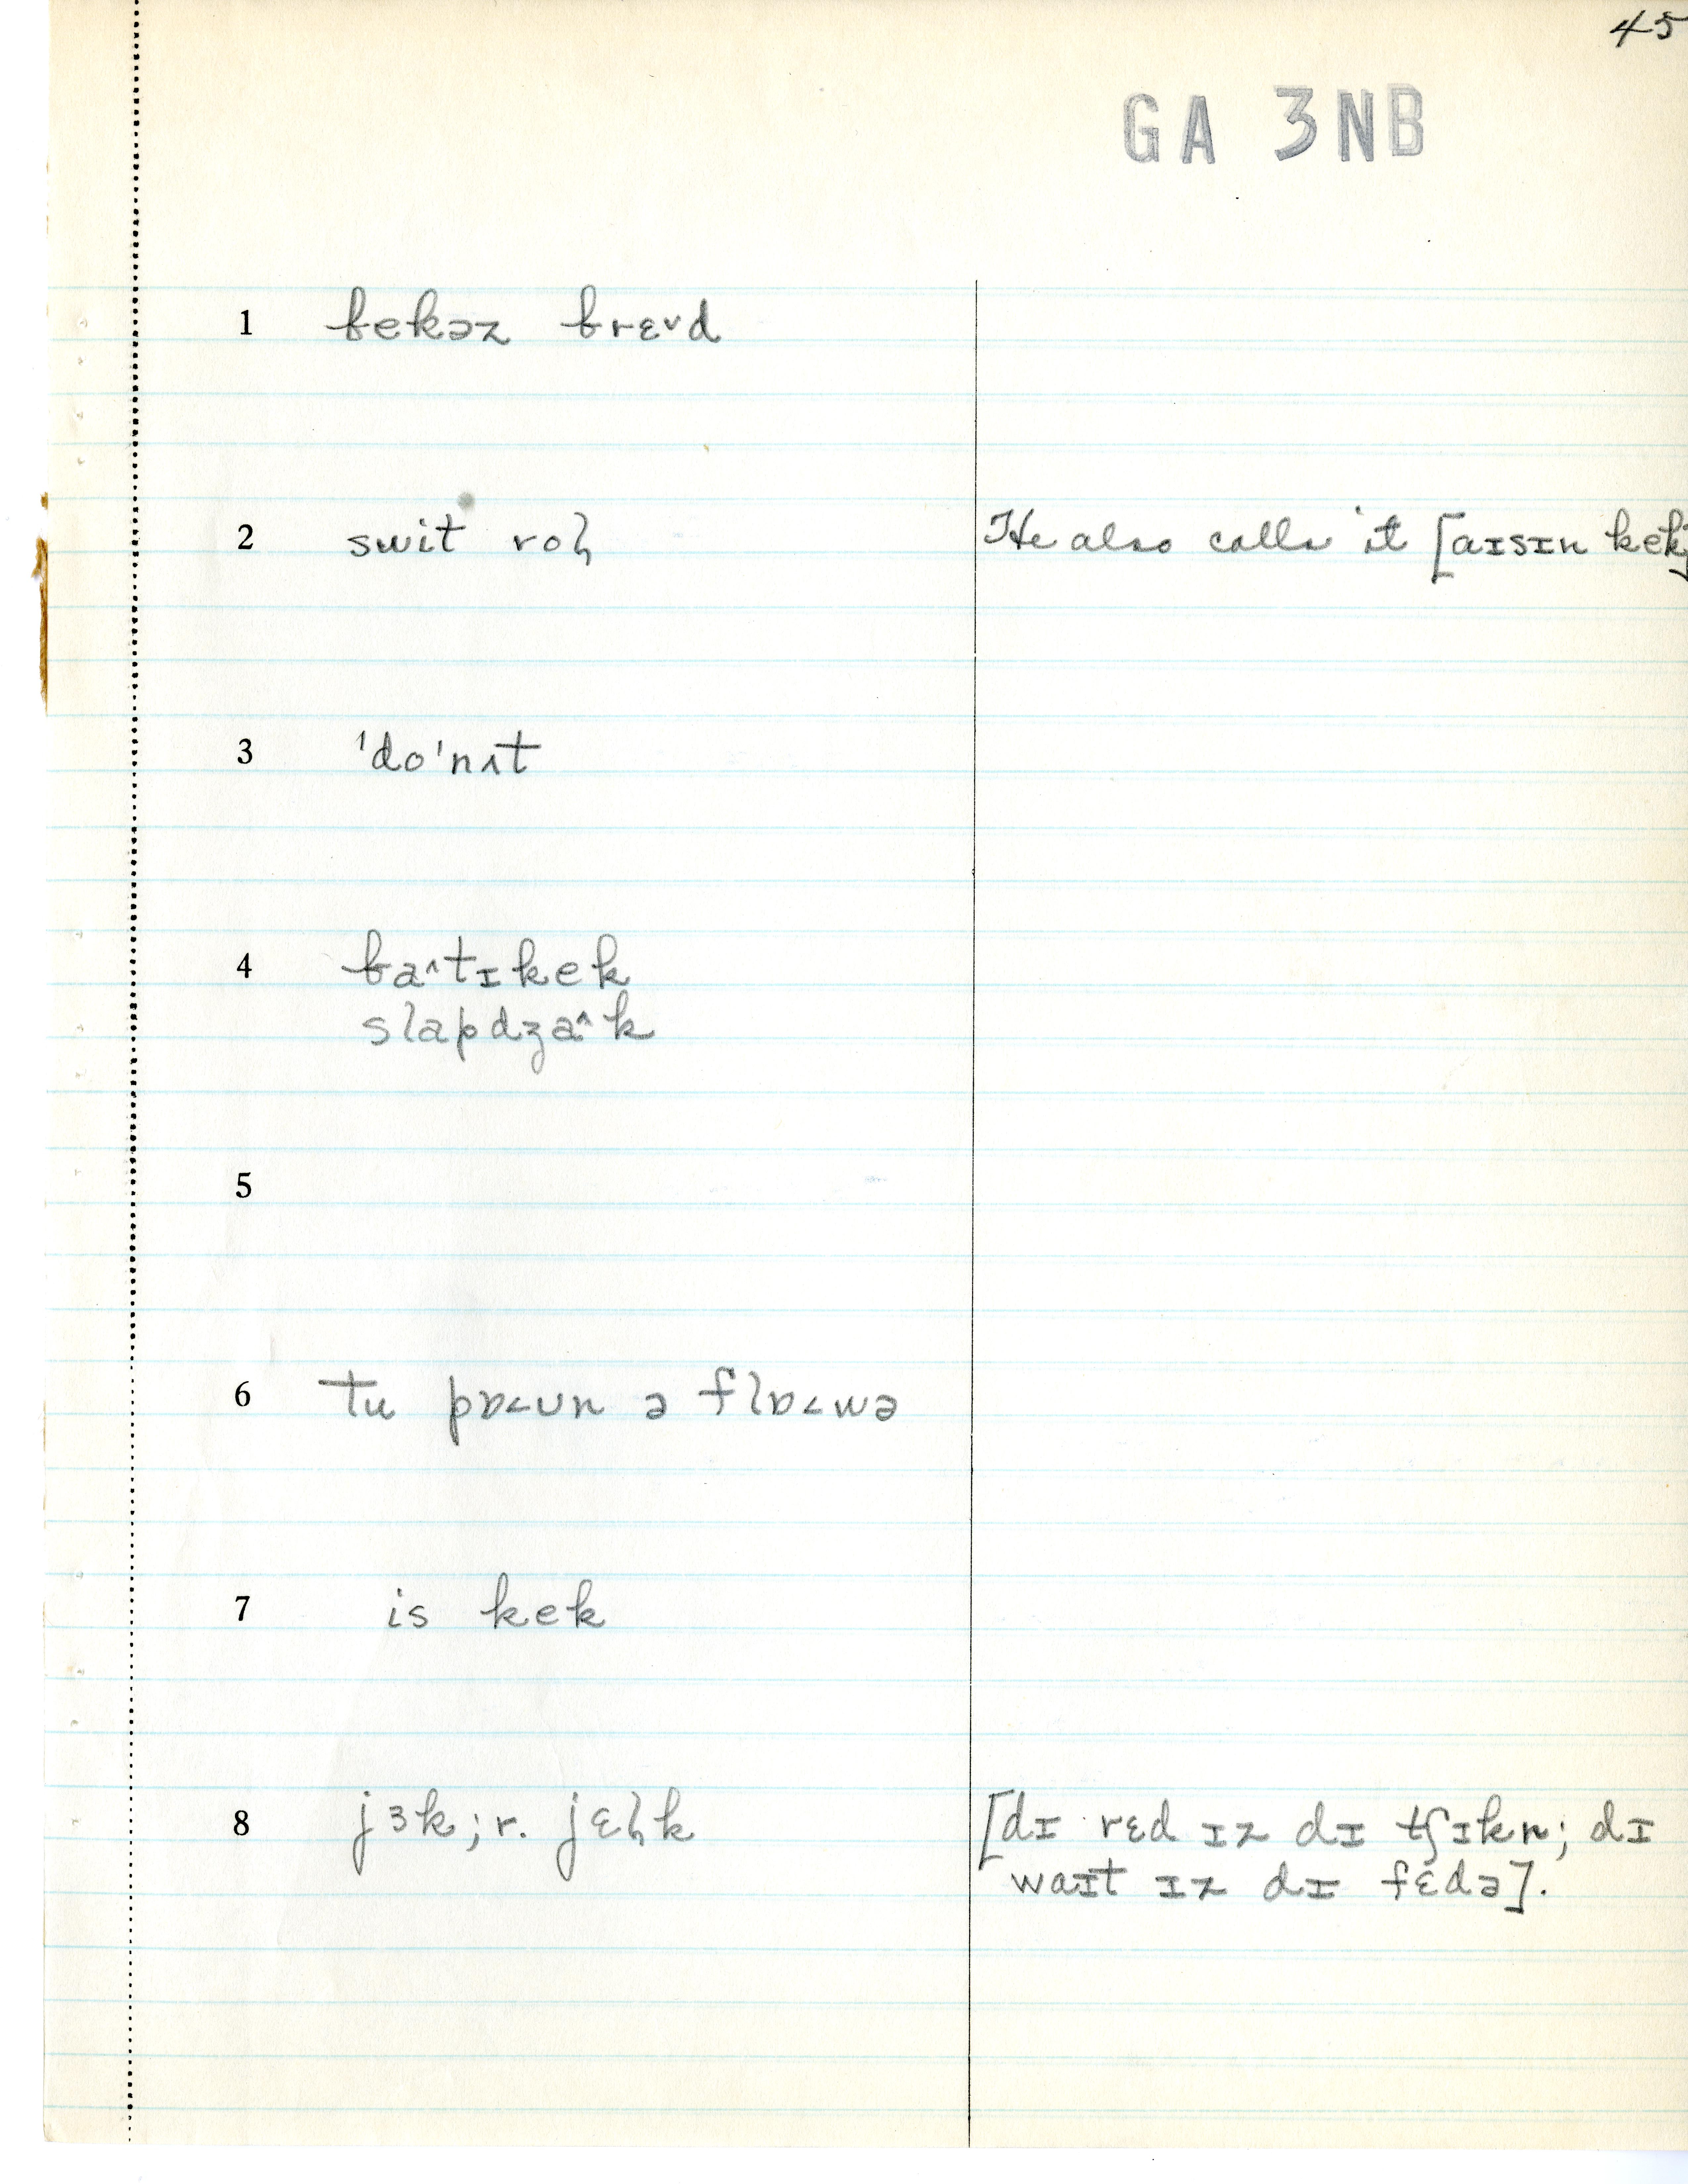 45
GA 3NB
1 bekəz brɛ˅d
2 swit roɫ He also calls it [aɪsɪn kek]
3 ˈdoˈnʌt
4 ba^tɪkek
slapdʒa^k
5
6 tu pɒ˂ʊn ə flɒ˂wə
7 is kek
8 jɜk; r. jɛɫk [dɪ rɛd ɪz dɪ tʃɪkn; dɪ
waɪt ɪz dɪ fɛdə].